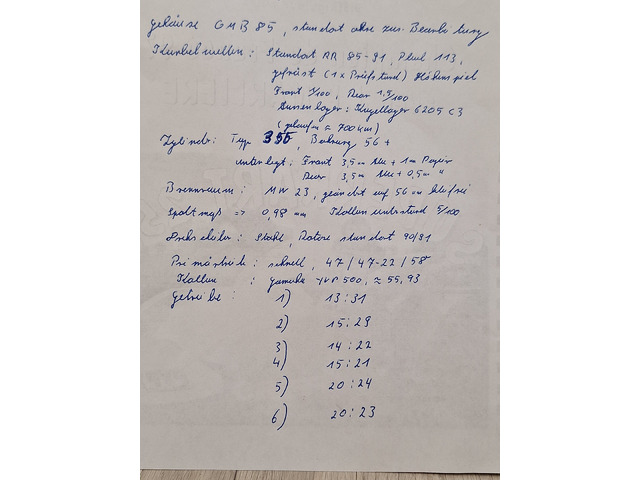 Gehäuse GMB 85, standart ohne zus. Bearbeitung
Kurbelwellen: Standart RR 85-91, Pleul 113,
gefräst (1x Prüfstand) Höhenspiel
Front 1/100, Rear 1,5/100
Aussenlager: Kugellager 6205 C3
(gelaufen ≈ 700 km)
Zylinder: Typ 350, Bohrung 56+
unterlegt: Front 3,5 mm Alu + 1 mm Papier
Rear 3,5 mm Alu + 0,5 m "
Brennraum: MW 23, geändert auf 56 mm bleifrei
Spaltmaß => 0,98 mm Kolben unterstand 5/100
Drehschieber: Stahl, Rotore standart 90/81
Primärtrieb: schnell, 47/47-22/58
Kolben: Yamaha 500, ≈ 55,93
Getriebe: 1) 13:31
2) 15:29
3) 14:22
4) 15:21
5) 20:24
6) 20:23